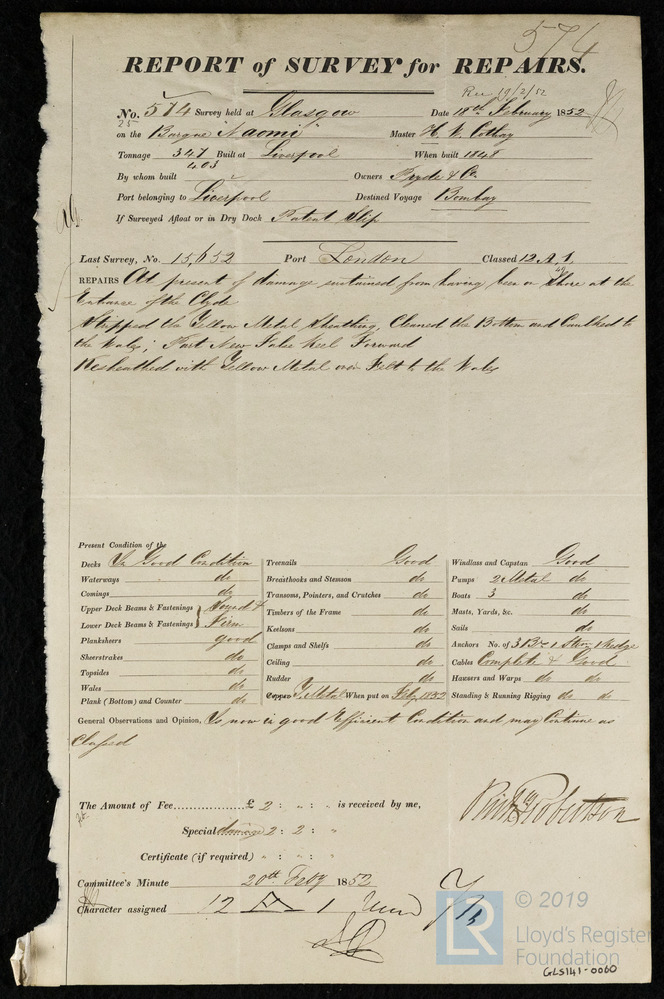 574
REPORT of SURVEY for REPAIRS.
Rec 19/2/52
No. 574 Survey held at Glasgow Date 18th February 1852
25
on the Barque "Naomi" Master H. W.
Tonnage 347 Built at Liverpool When built 1848
403
By whom built Owners Pryde & Co.
Port belonging to Liverpool Destined Voyage Bombay
If Surveyed Afloat or in Dry Dock Patent Slip
Last Survey, No. 15,652 Port London Classed 12 A 1
REPAIRS At present of damage sustained from having been on Shore at the
Entrance of the Clyde
Stripped the Yellow Metal Sheathing, Cleaned the Bottom and Caulked to
the Wales; Part New False Keel Forward
Resheathed with Yellow Metal over Felt to the Wales
Present Condition of the
Decks In Good Condition
Waterways do
Comings do
Upper Deck Beams & Fastenings } Sound &
Lower Deck Beams & Fastenings } Firm
Planksheers good
Sheerstrakes do
Topsides do
Wales do
Plank (Bottom) and Counter do
Treenails Good
Breasthooks and Stemson do
Transoms, Pointers, and Crutches do
Timbers of the Frame do
Keelsons do
Clamps and Shelfs do
Ceiling do
Rudder do
Copper Y Metal When put on Feby 1852
Windlass and Capstan Good
Pumps 2 Metal do
Boats 3 do
Masts, Yards, &c. do
Sails do
Anchors No. of 3 Br 1 Strm 1 Kedge
Cables Complete & Good
Hawsers and Warps do do
Standing & Running Rigging do do
General Observations and Opinion, Is now in good Efficient Condition and may Continue as
Classed
The Amount of Fee £ 2 : " : " is received by me,
Special damage 2 : 2 : "
Certificate (if required) " : " : "
Robertson
Committee's Minute 20th Feby 1852
Character assigned 12 A 1
© 2019
LR
Lloyd's Register
Foundation
GLS141-0060